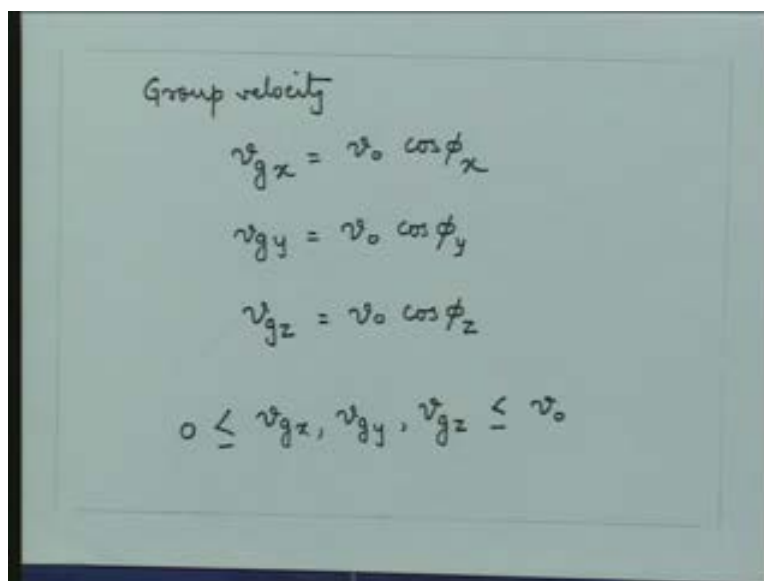 Group velocity
v_gx = v_0 cos ϕ_x
v_gy = v_0 cos ϕ_y
v_gz = v_0 cos ϕ_z
0 ≤ v_gx, v_gy, v_gz ≤ v_0